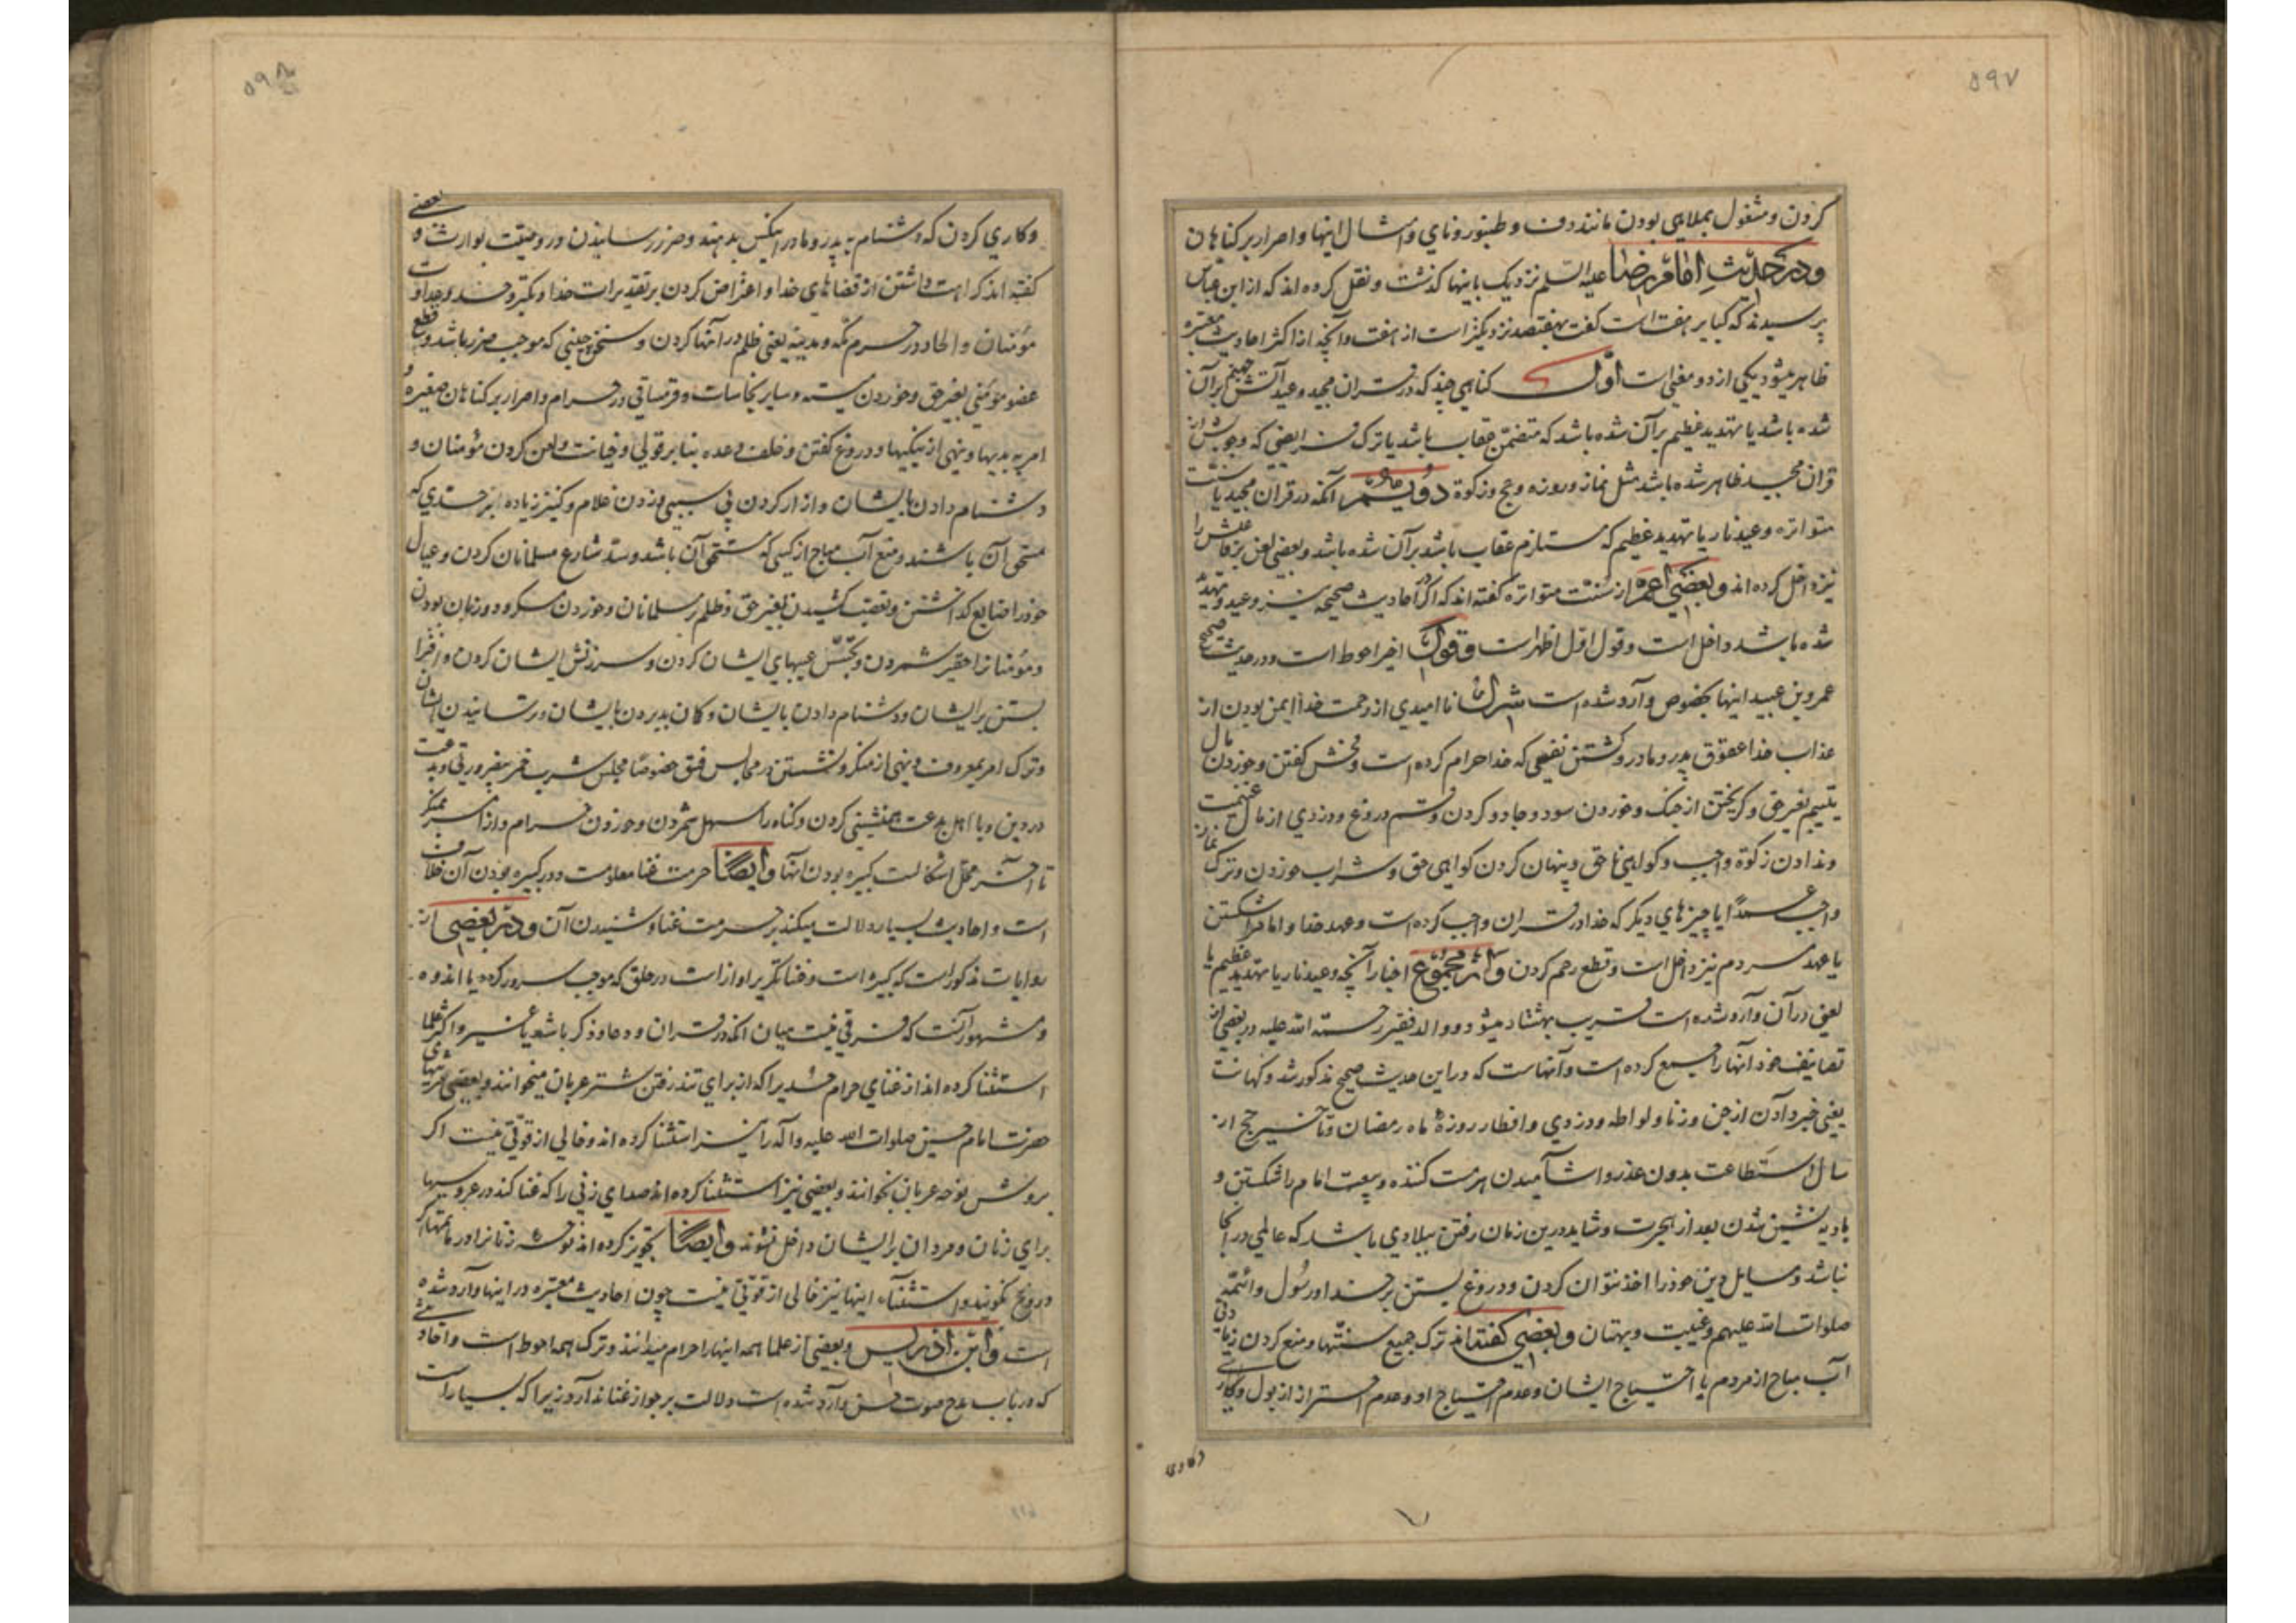 ۵۹۷
کردن و مشغول بملاهی بودن مانند دف و طنبور و نای و امثال اینها و اصرار بر کناهان
و در حدیث امام رضا علیه السلم نزدیک باینها کذشت و نقل کرده اند که از ابن عباس
پرسیدند که کبایر هفت است کفت بهفتصد نزدیکتر است از هفت و آنچه از اکثر احادیث معتبره
ظاهر میشود یکی از دو معنی است اول کناهی چند که در قران مجید وعید آتش جهنم بر آن
شده باشد یا تهدید عظیم بر آن شده باشد که متضمن عقاب باشد یا ترک فرایضی که وجوبش از
قران مجید ظاهر شده باشد مثل نماز و روزه و حج و زکوة دویم آنکه در قران مجید یا سنت
متواتره وعید نار یا تهدید عظیم که مستلزم عقاب باشد بر آن شده باشد و بعضی لعن بر فاعلش را
نیز داخل کرده اند و بعضی اعم از سنت متواتره کفته اند که اکر در احادیث صحیحه نیز وعید و تهدید
شده باشد داخل است و قول اول اظهر است و قول اخیر احوط است و در حدیث صحیح
عمرو بن عبید اینها بخصوص وارد شده است شرک نا امیدی از رحمت خدا ایمن بودن از
عذاب خدا عقوق پدر و مادر و کشتن نفسی که خدا حرام کرده است و فحش کفتن و خوردن مال
یتیم بغیر حق و کریختن از جنک و خوردن سود و جادو کردن و قسم دروغ و دزدی از مال غنیمت
و ندادن زکوة واجب و کواهی نا حق و پنهان کردن کواهی حق و شراب خوردن و ترک نماز
واجب عمداً یا چیزهای دیکر که خدا در قران واجب کرده است و عهد خدا و امام را شکستن
یا عهد مردم نیز داخل است و قطع رحم کردن و از مجموع اخبار آنچه وعید نار یا تهدید عظیم یا
لعنی در آن وارد شده است قریب بهشتاد میشود و والد فقیر رحمة الله علیه در بعضی از
تصانیف خود آنها را جمع کرده است و آنهاست که در این حدیث صحیح مذکور شد و کهانت
یعنی خبر دادن از جن و زنا و لواطه و دزدی و افطار روزهٔ ماه رمضان و تاخیر حج از
سال استطاعت بدون عذر و اشامیدن هر مست کننده و بیعت امام را شکستن و
بادیه نشین شدن بعد از هجرت و شاید درین زمان رفتن ببلادی باشد که عالمی در آنجا
نباشد و مسایل دین خود را اخذ نتوان کردن و دروغ بستن بر خدا و رسول و ائمه
صلوات الله علیهم و غیبت و بهتان و بعضی کفته اند ترک جمیع سنتها و منع کردن زیادتی
آب مباح از مردم با احتیاج ایشان و عدم احتیاج او و عدم احتراز از بول و کاری
و کاری
۵۹۸
و کاری کردن که دشنام به پدر و مادر اینکس بدهند و ضرر رسانیدن در وصیت بوارث و بعضی
کفته اند کراهت داشتن از قضاهای خدا و اعتراض کردن بر تقدیرات خدا و تکبر و حسد و عداوت
مؤمنان و الحاد در حرم مکه و مدینه یعنی ظلم در آنها کردن و سخن چینی که موجب ضرر باشد و قطع
عضو مؤمنی بغیر حق و خوردن میته و سایر نجاسات و قرمساقی در حرام و اصرار بر کناهان صغیره و
امر به بدیها و نهی از نیکیها و دروغ کفتن و خلف وعده بنا بر قولی و خیانت و لعن کردن مؤمنان و
دشنام دادن بایشان و ازار کردن بی سببی و زدن غلام و کنیز زیاده از حدی که
مستحق آن باشند و منع آب مباح از کسی که مستحق آن باشد و سد شارع مسلمانان کردن و عیال
خود را ضایع کذاشتن و تعصب کشیدن بغیر حق و ظلم مسلمانان و خوردن مسکر و دو زبان بودن
و مؤمنانرا حقیر شمردن و تجسس عیبهای ایشان کردن و سرزنش ایشان کردن و افترا
بستن بر ایشان و دشنام دادن بایشان و کمان بد بردن بایشان و ترسانیدن ایشان
و ترک امر بمعروف و نهی از منکر و نشستن در مجالس فسق خصوصا مجلس شرب خمر بضرورتی و بدعت
در دین و با اهل بدعت همنشینی کردن و کناه را سهل شمردن و خوردن حرام و از
تا آخر محل اشکالست کبیره بودن آنها و ایضا حرمت غنا معلومست و در کبیره بودن آن خلاف
است و احادیث بسیار دلالت میکند بر حرمت غنا و شنیدن آن و در بعضی از
روایات مذکور است که کبیره است و غنا تکریر اواز است در حلق که موجب سرور کردد یا اندوه
و مشهور آنست که فرقی نیست میان انکه در قران و دعا و ذکر باشد یا غیر و اکثر علما
استثنا کرده اند از غنای حرام حُدیرا که از برای تند رفتن شتر عربان میخوانند و بعضی مرثیهای
حضرت امام حسین صلوات الله علیه و آله را نیز استثنا کرده اند و خالی از قوتی نیست اکر
بروش نوحه عربان بخوانند و بعضی نیز استثنا کرده اند صدای زنی را که غنا کند در عروسیها
برای زنان و مردان بر ایشان داخل نشوند و ایضا تجویز کرده اند نوحه زنانرا در ماتمها اکر
دروغ نکویند و استثناء اینها نیز خالی از قوتی نیست چون احادیث معتبره در اینها وارد شده
است و ابن ادریس و بعضی از علما همه اینها را حرام میدانند و ترک همه احوط است و احادیثی
که در باب مدح صوت حسن وارد شده است دلالت بر جواز غنا ندارد زیرا که بسیار است